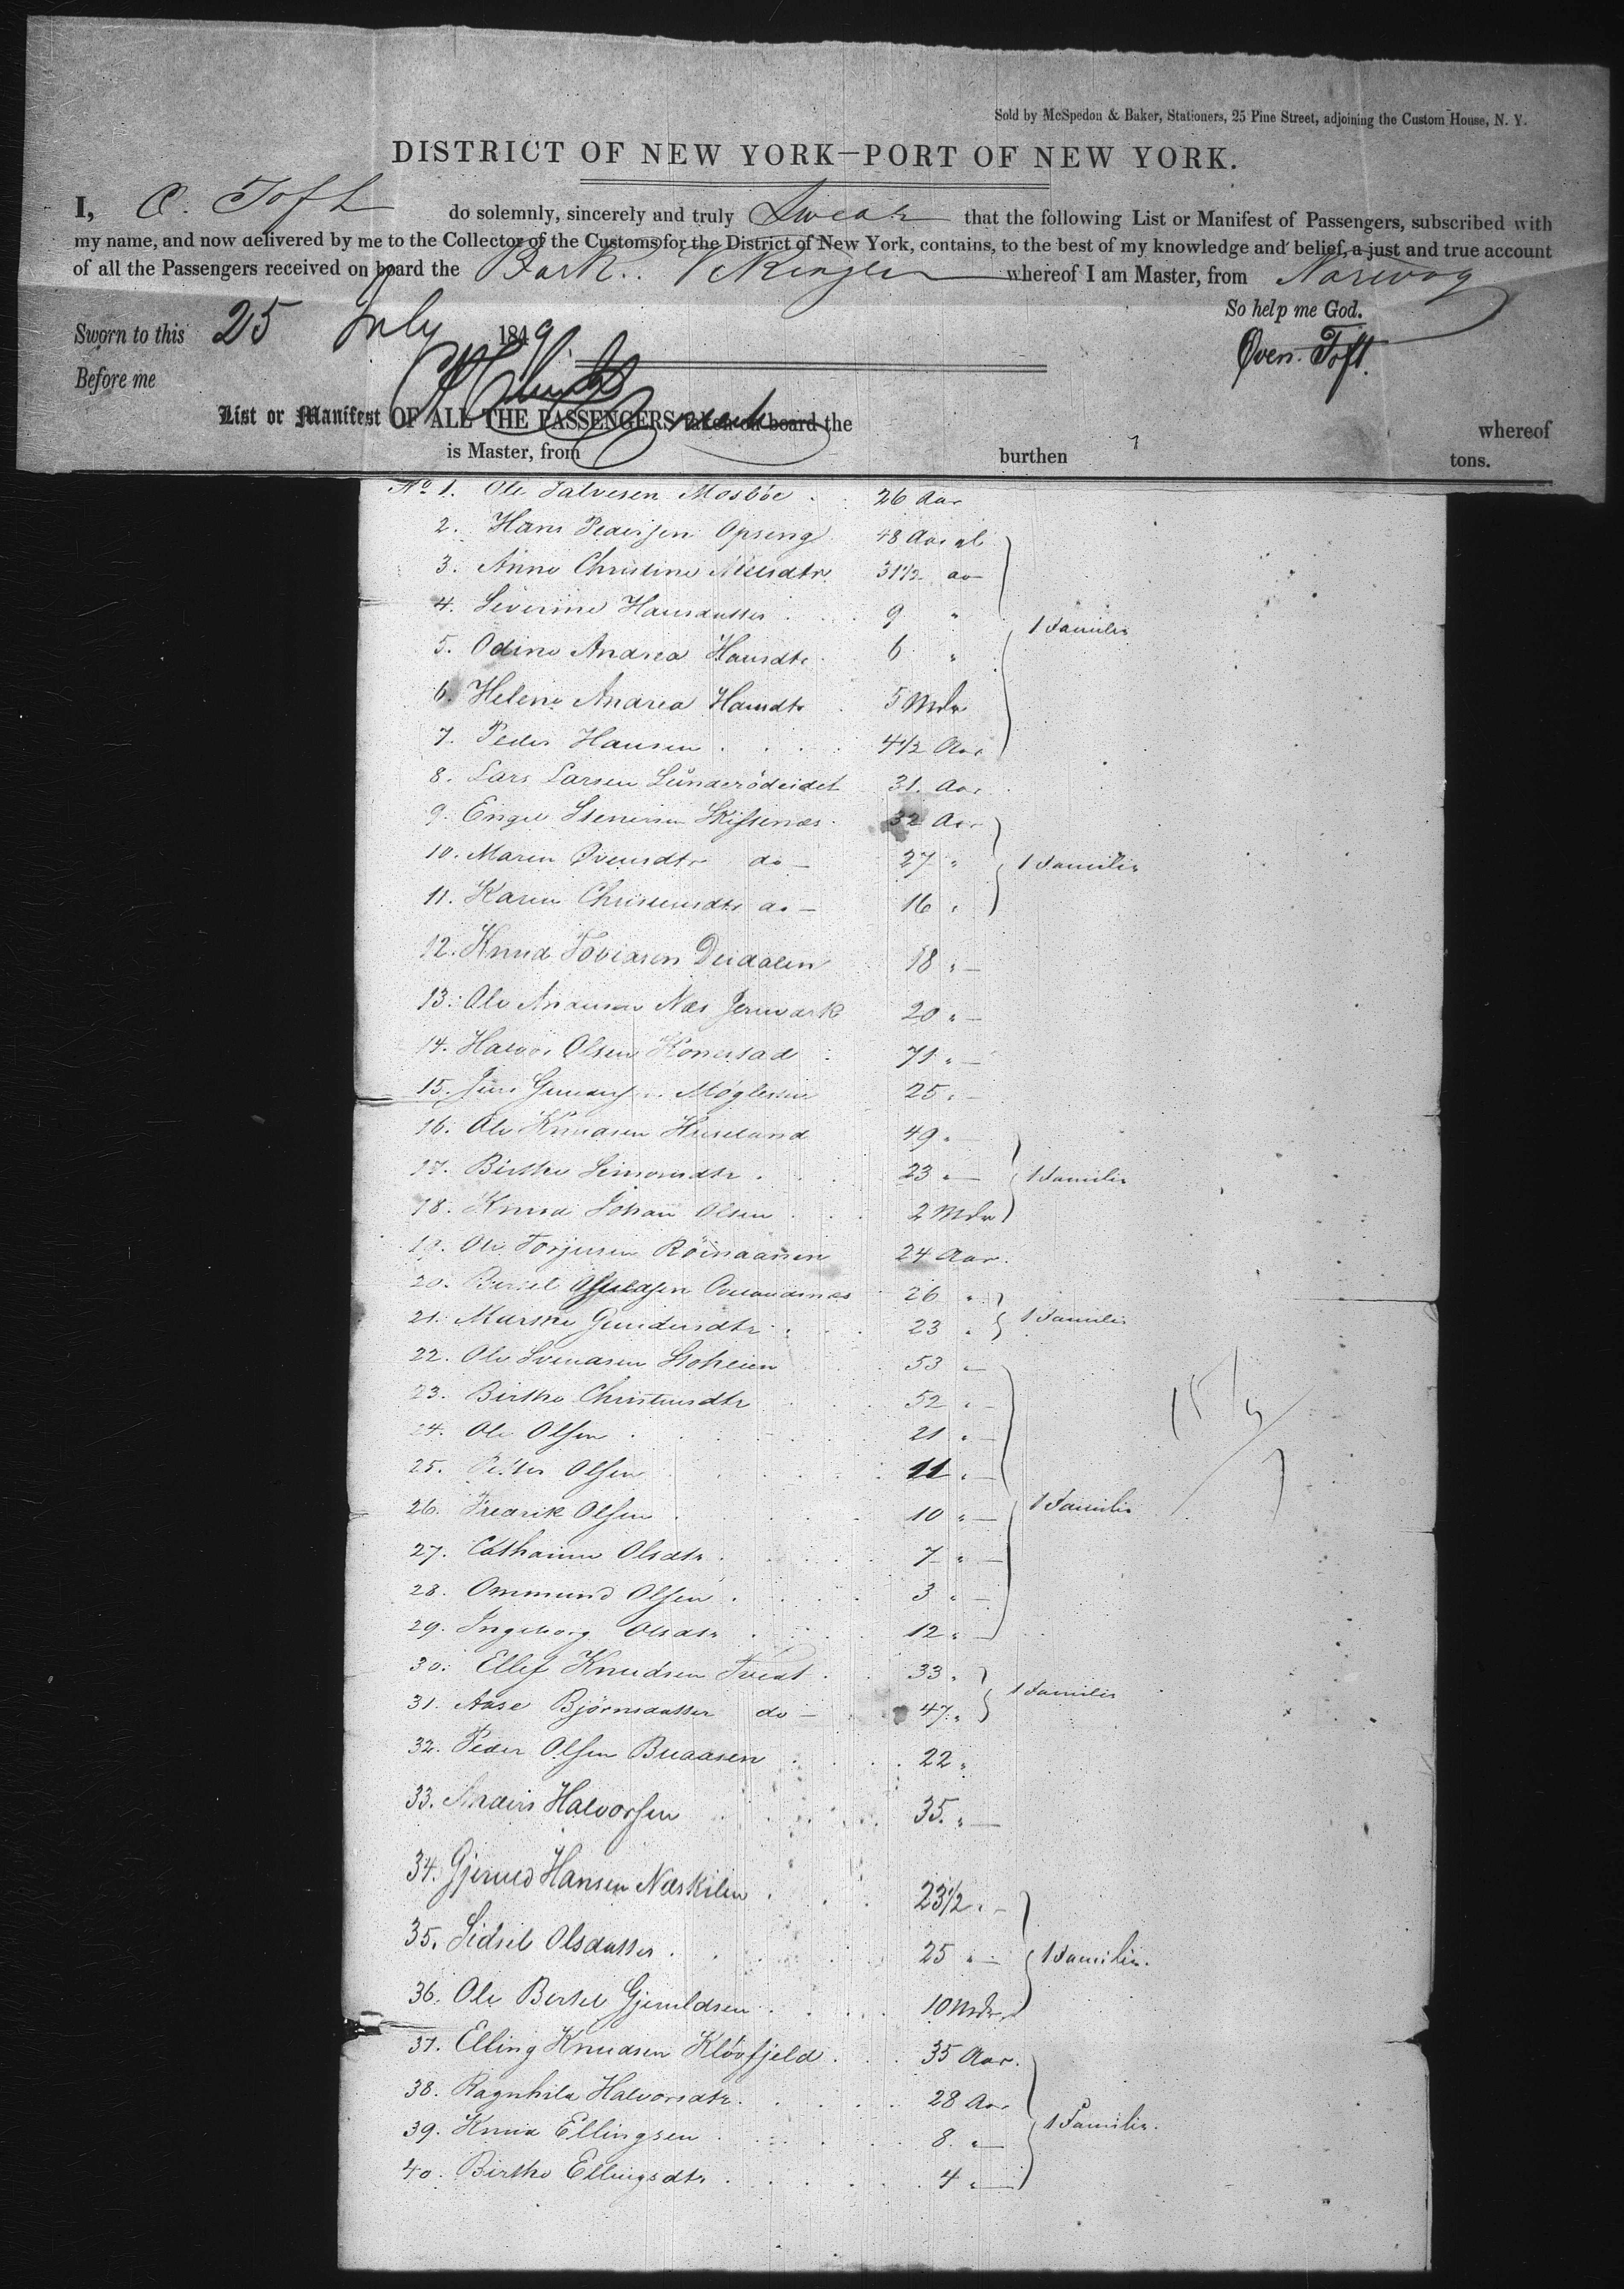 Sold by McSpedon & Baker, Stationers, 25 Pine Street, adjoining the Custom House, N. Y.
DISTRICT OF NEW YORK—PORT OF NEW YORK.
I, O. Toft do solemnly, sincerely and truly Swear that the following List or Manifest of Passengers, subscribed with
my name, and now delivered by me to the Collector of the Customs for the District of New York, contains, to the best of my knowledge and belief, a just and true account
of all the Passengers received on board the Bark whereof I am Master, from Norway
So help me God.
Sworn to this 25 July 1849
Øven Toft.
Before me
List or Manifest OF ALL THE PASSENGERS taken on board the whereof
is Master, from burthen tons.
No 1. Ole Salvesen Mosböe 26 Aar
2. Hans Pedersen Opseng 48 Aar
3. Anne Christine Nielsdtr 31 1/2 do
4. Severine Hansdatter 9 "
1 Familie
5. Odine Andrea Hansdtr 6 "
6. Helene Andrea Hansdtr 5 Mdr
7. Peder Hansen 4 1/2 Aar
8. Lars Larsen 31. Aar
9. Engel Stenersen 32 Aar
10. Maren Øvensdtr do 27 " 1 Familie
11. Karen Christensdtr do 16 "
12. Knud Tobiasen Deidalen 18 "
13. Ole Andersen Næs Jernværk 20 "
14. Halvor Olsen 71 "
15. Jens 25 "
16. Ole Knudsen Huseland 49 "
17. Birthe Simonsdtr 23 " 1 Familie
18. Knud Johan Olsen 2 Mdr
19. Ole Torjusen Röinaasen 24 Aar
20. 26 "
21. Marthe Gundersdtr 23 " 1 Familie
22. Ole Svendsen Stoheien 53 "
23. Birthe Christensdtr 52 "
24. Ole Olsen 21 "
25. Peter Olsen 11 "
26. Fredrik Olsen 10 " 1 Familie
27. Cathrine Olsdtr 7 "
28. Ommund Olsen 3 "
29. Ingeborg Olsdtr 12 "
30. Ellef Knudsen Tveit 33 "
31. Aase Björnsdatter do 47 " 1 Familie
32. Peder Olsen Buaasen 22 "
33. Anders Halvorsen 35. "
34. Hansen Næskilen 23 1/2 "
35. Sidsel Olsdatter 25 " 1 Familie.
36. Ole Bertel Gjeruldsen 10 Mdr
37. Elling Knudsen Klövfjeld 35 Aar.
38. Ragnhild Halvorsdtr. 28 Aar
39. Knud Ellingsen 8 " 1 Familie.
40. Birthe Ellingsdtr 4 "